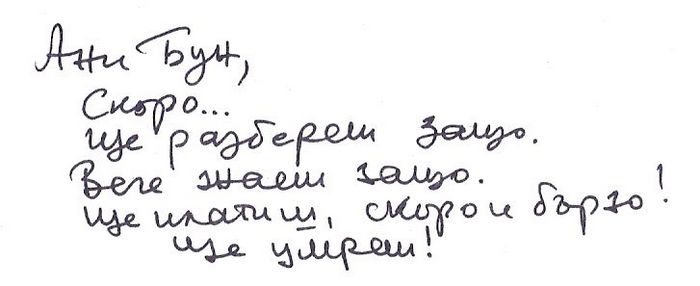 Ани Бун,
Скоро...
ще разбереш защо.
Вече знаеш защо.
ще платиш, скоро и бързо!
ще умреш!